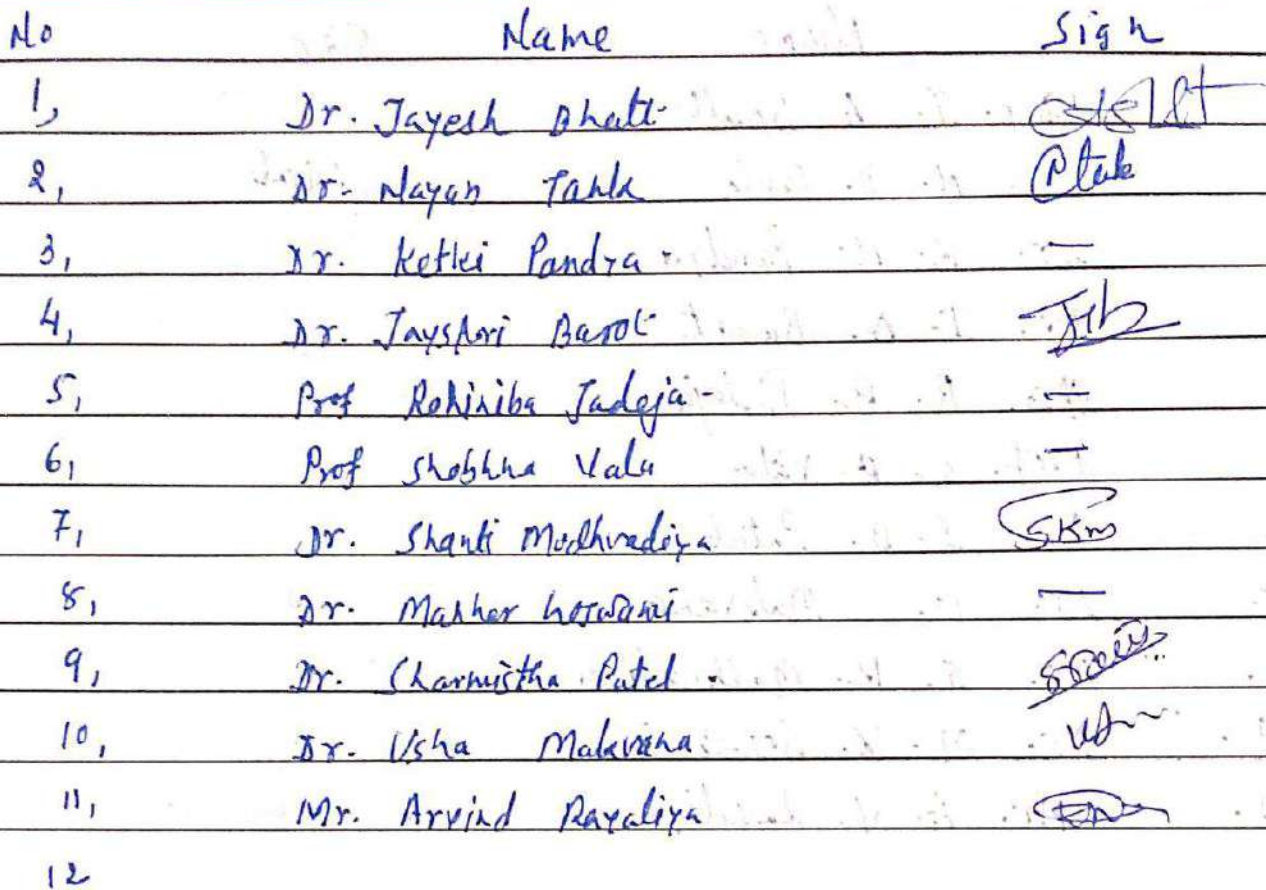 No Name Sign
1, Dr. Jayesh Bhatt
2, Dr. Nayan Tank
3, Dr. Ketki Pandya -
4, Dr. Jayshri Barot
5, Prof Rohiniba Jadeja -
6, Prof Shobhna Vala -
7, Dr. Shanti Modhvadiya SKm
8, Dr. Goswami -
9, Dr. Sharmistha Patel
10, Dr. Usha Makvana
11, Mr. Arvind
12